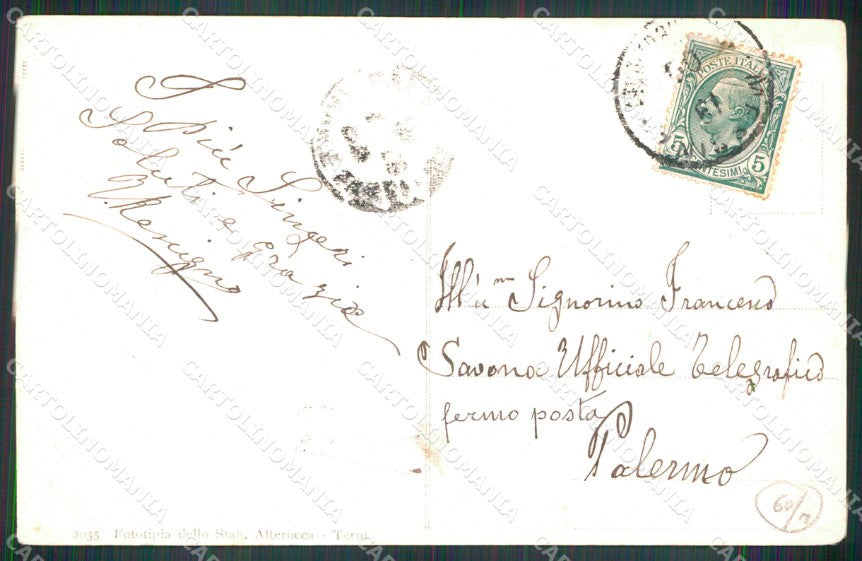 I più Sinceri
Saluti e grazie
V. Benigno
POSTE ITALI
5 5
Ill.mo Signorino Francesco
Savona Ufficiale Telegrafico
fermo posta
Palermo
60/
2035 Fototipia dello Stab. Alterocca - Terni
CARTOLINOMANIA